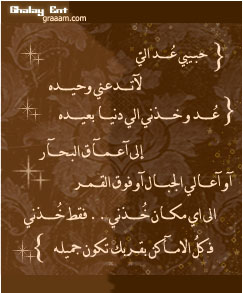 Ghalay Ent
graaam.com
{ حبيبي عُد اليّ
لآ تدعني وحيده
عُد و خذني الي دنيا بعيده {
إلى آعمآق البحآر
آو آعالي الجبال آو فوق القمر
الى اي مكان خُذني . . فقط خُذني
فكلُ الآماكن بقربك تكون جميله }